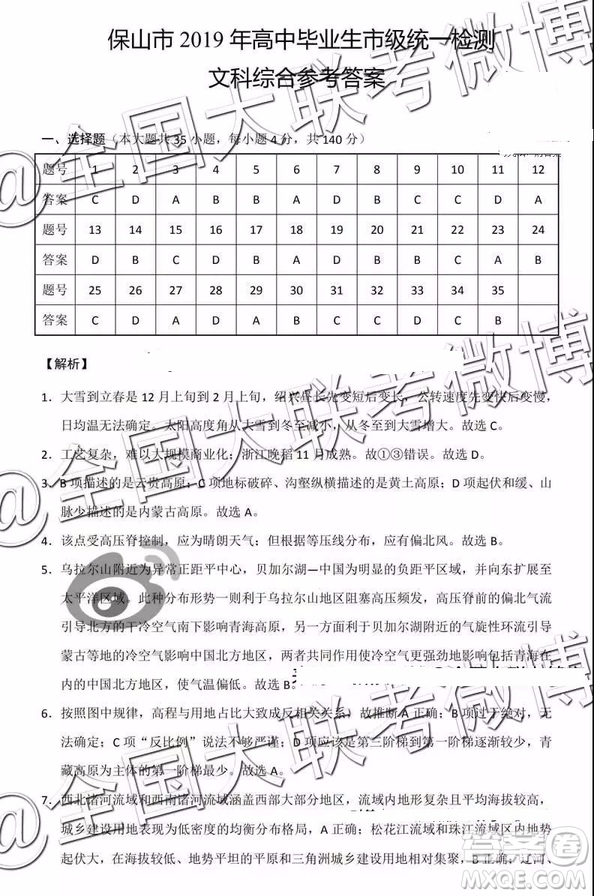 保山市 2019 年高中毕业生市级统一检测
文科综合参考答案
一、选择题（本大题共 35 小题，每小题 4 分，共 140 分）
题号 1 2 3 4 5 6 7 8 9 10 11 12
答案 C D A B B A D B C C D A
题号 13 14 15 16 17 18 19 20 21 22 23 24
答案 D B C D B A D B D C A B
题号 25 26 27 28 29 30 31 32 33 34 35
答案 C D A C B C D A C D B
【解析】
1．大雪到立春是 12 月上旬到 2 月上旬，绍兴昼长先变短后变长，公转速度先变快后变慢，
日均温无法确定。太阳高度角从大雪到冬至减小，从冬至到大雪增大。故选 C。
2．工艺复杂，难以大规模商业化；浙江晚稻 11 月成熟。故①③错误。故选 D。
3．B 项描述的是云贵高原；C 项地标破碎、沟壑纵横描述的是黄土高原；D 项起伏和缓、山
脉少描述的是内蒙古高原。故选 A。
4．该点受高压脊控制，应为晴朗天气；根据等压线分布，应有偏北风。故选 B。
5．乌拉尔山附近为异常正距平中心，贝加尔湖—中国为明显的负距平区域，并向东延伸至
太平洋区域，此种分布形势一则利于乌拉尔山地区阻塞高压频发，高压脊前的偏北气流
引导北方的干冷空气南下影响青海高原，二则有利于贝加尔湖附近的气旋性环流引导
蒙古等地的冷空气影响中国北方地区，两者共同作用，导致北方冷空气活动强劲，研究区
内的中国北方地区，使气温偏低。故选 B
6．按照图中规律，高程与用地占比大致成反相关关系，故推断 A 正确；B 项过于绝对，无
法确定；C 项“反比例”说法不够严谨；D 项应该是第三阶梯到第一阶梯逐渐变少，青
藏高原为主体的第一阶梯不明显。故选 A。
7．西北诸河流域和西南诸河流域涵盖荒漠、戈壁、高山等，流域内地形复杂且平均海拔较高，
城乡建设用地表现为低密度的均衡分布格局，A 正确；松花江流域和珠江流域城乡
起伏较低处、地势平坦的平原和三角洲城乡建设用地相对集聚，B、C 正确；辽河流
@全国大联考微博
答案圈
MXQE.COM